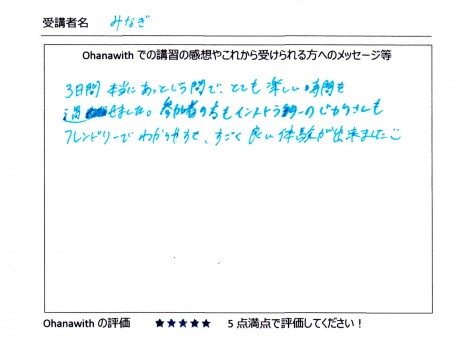 受講者名 みなぎ
Ohanawith での講習の感想やこれから受けられる方へのメッセージ等
3日間 本当にあっという間で、とても楽しい時間を
過せました。参加者の方もインストラの
フレンドリーでわかりやすく、すごく良い体験が出来ました
Ohanawith の評価 ★★★★★ 5 点満点で評価してください！